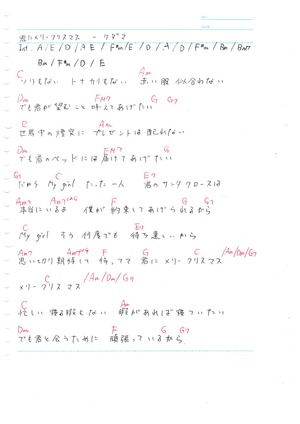 君にメリークリスマス
Int. A/E/D/A E/F#m/E/D/A/D/F#m/Bm/Bm7
Bm/F#m/D/E
C Am
ソリもない トナカイもない 赤い服 似合わない
Dm FM7 G G7
でも君が望むこと 叶えてあげたい
C Am
世界中の煙突に プレゼントは配れない
Dm FM7 G
でも君のベッドには届けてあげたい
G C G E7
だから My girl たった一人 君のサンタクロースは
Am7 F G G7
本当にいるよ 僕が約束してあげられるから
C G E7
My girl そう 何度でも
Am7 F G C /Am/Dm/G7
思いっきり期待して 待ってて 君に メリークリスマス
C /Am/Dm/G7
メリークリスマス
C Am
忙しい 寝る暇もない 暇があれば寝ていたい
Dm F G G7
でも君と会うために 頑張っているから